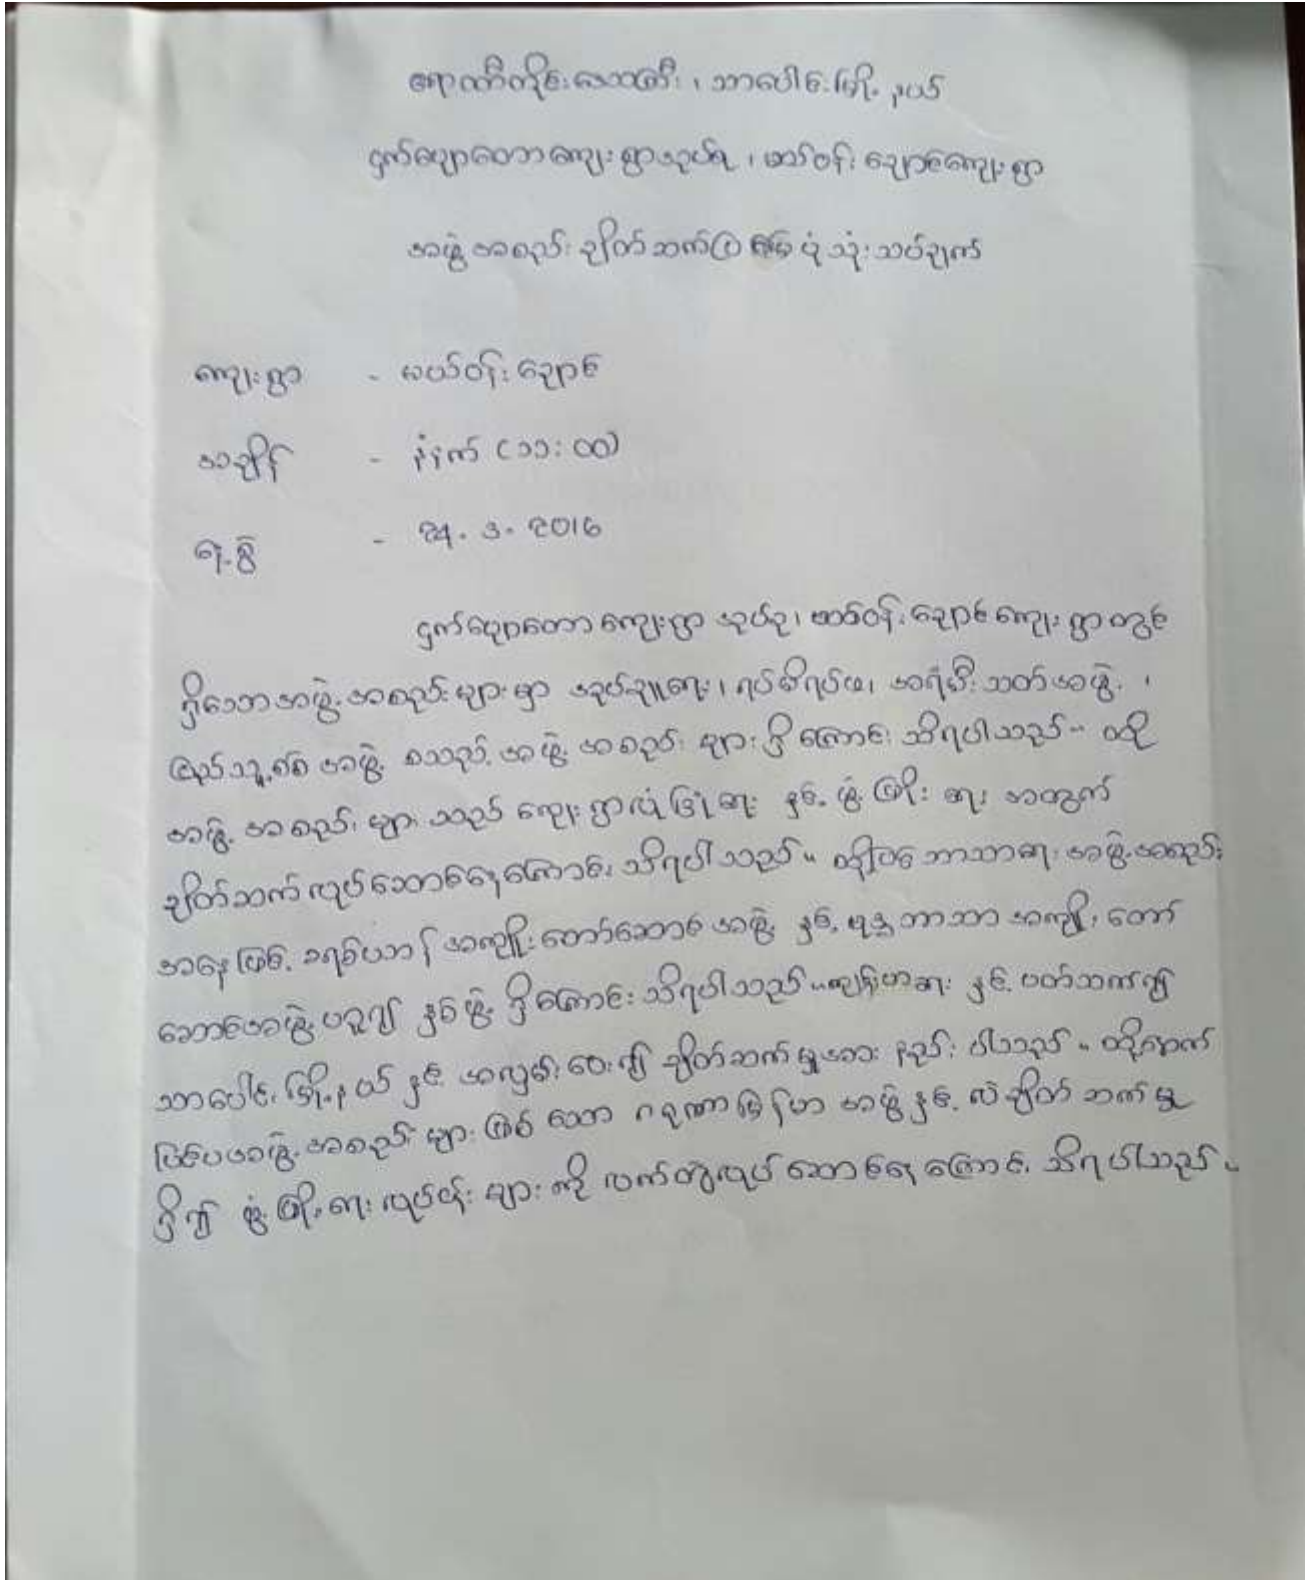 ဧရာဝတီတိုင်းဒေသကြီး ၊ သာပေါင်းမြို့နယ်
ငှက်ပျောတောကျေးရွာအုပ်စု ၊ မယ်ဝန်းချောင်ကျေးရွာ
အဖွဲ့အစည်း ချိတ်ဆက်ပြ ပုံ သုံးသပ်ချက်
ကျေးရွာ - မယ်ဝန်းချောင်
အချိန် - နံနက် (၁၁း၀၀)
ရ.စွဲ - ၃.၂၀၁၆
ငှက်ပျောတောကျေးရွာ အုပ်စု၊ မယ်ဝန်းချောင်ကျေးရွာတွင်
ရှိသောအဖွဲ့အစည်းများမှာ အုပ်ချုပ်ရေး ၊ ရပ်မိရပ်ဖ၊ အရံမီးသတ်အဖွဲ့ ၊
ပြည်သူ့စစ်အဖွဲ့ စသည့် အဖွဲ့အစည်းများရှိကြောင်း သိရပါသည်။ ထို
အဖွဲ့အစည်းများသည် ကျေးရွာလုံခြုံရေး နှင့် ဖွံ့ဖြိုးရေး အတွက်
ချိတ်ဆက်လုပ်ဆောင်နေကြောင်း သိရပါသည်။ ထို့ပြင် ဘာသာရေးအဖွဲ့အစည်း
အနေဖြင့် ခရစ်ယာန် အကျိုးတော်ဆောင်အဖွဲ့ နှင့် ဗုဒ္ဓဘာသာ အကျိုးတော်
ဆောင်အဖွဲ့ဟူ၍ နှစ်ဖွဲ့ရှိကြောင်း သိရပါသည်။ကျန်းမာရေး နှင့် ပတ်သက်၍
သာပေါင်းမြို့နယ်နှင့် အလှမ်းဝေး၍ ချိတ်ဆက်မှုအား နည်းပါသည်။ ထို့နောက်
ပြင်ပအဖွဲ့အစည်းများဖြစ်သော ဂရုဏာမြန်မာ အဖွဲ့နှင့် လဲချိတ်ဆက်မှု
ရှိ၍ ဖွံ့ဖြိုးရေးလုပ်ငန်းများကို လက်တွဲလုပ်ဆောင်နေကြောင်း သိရပါသည်။